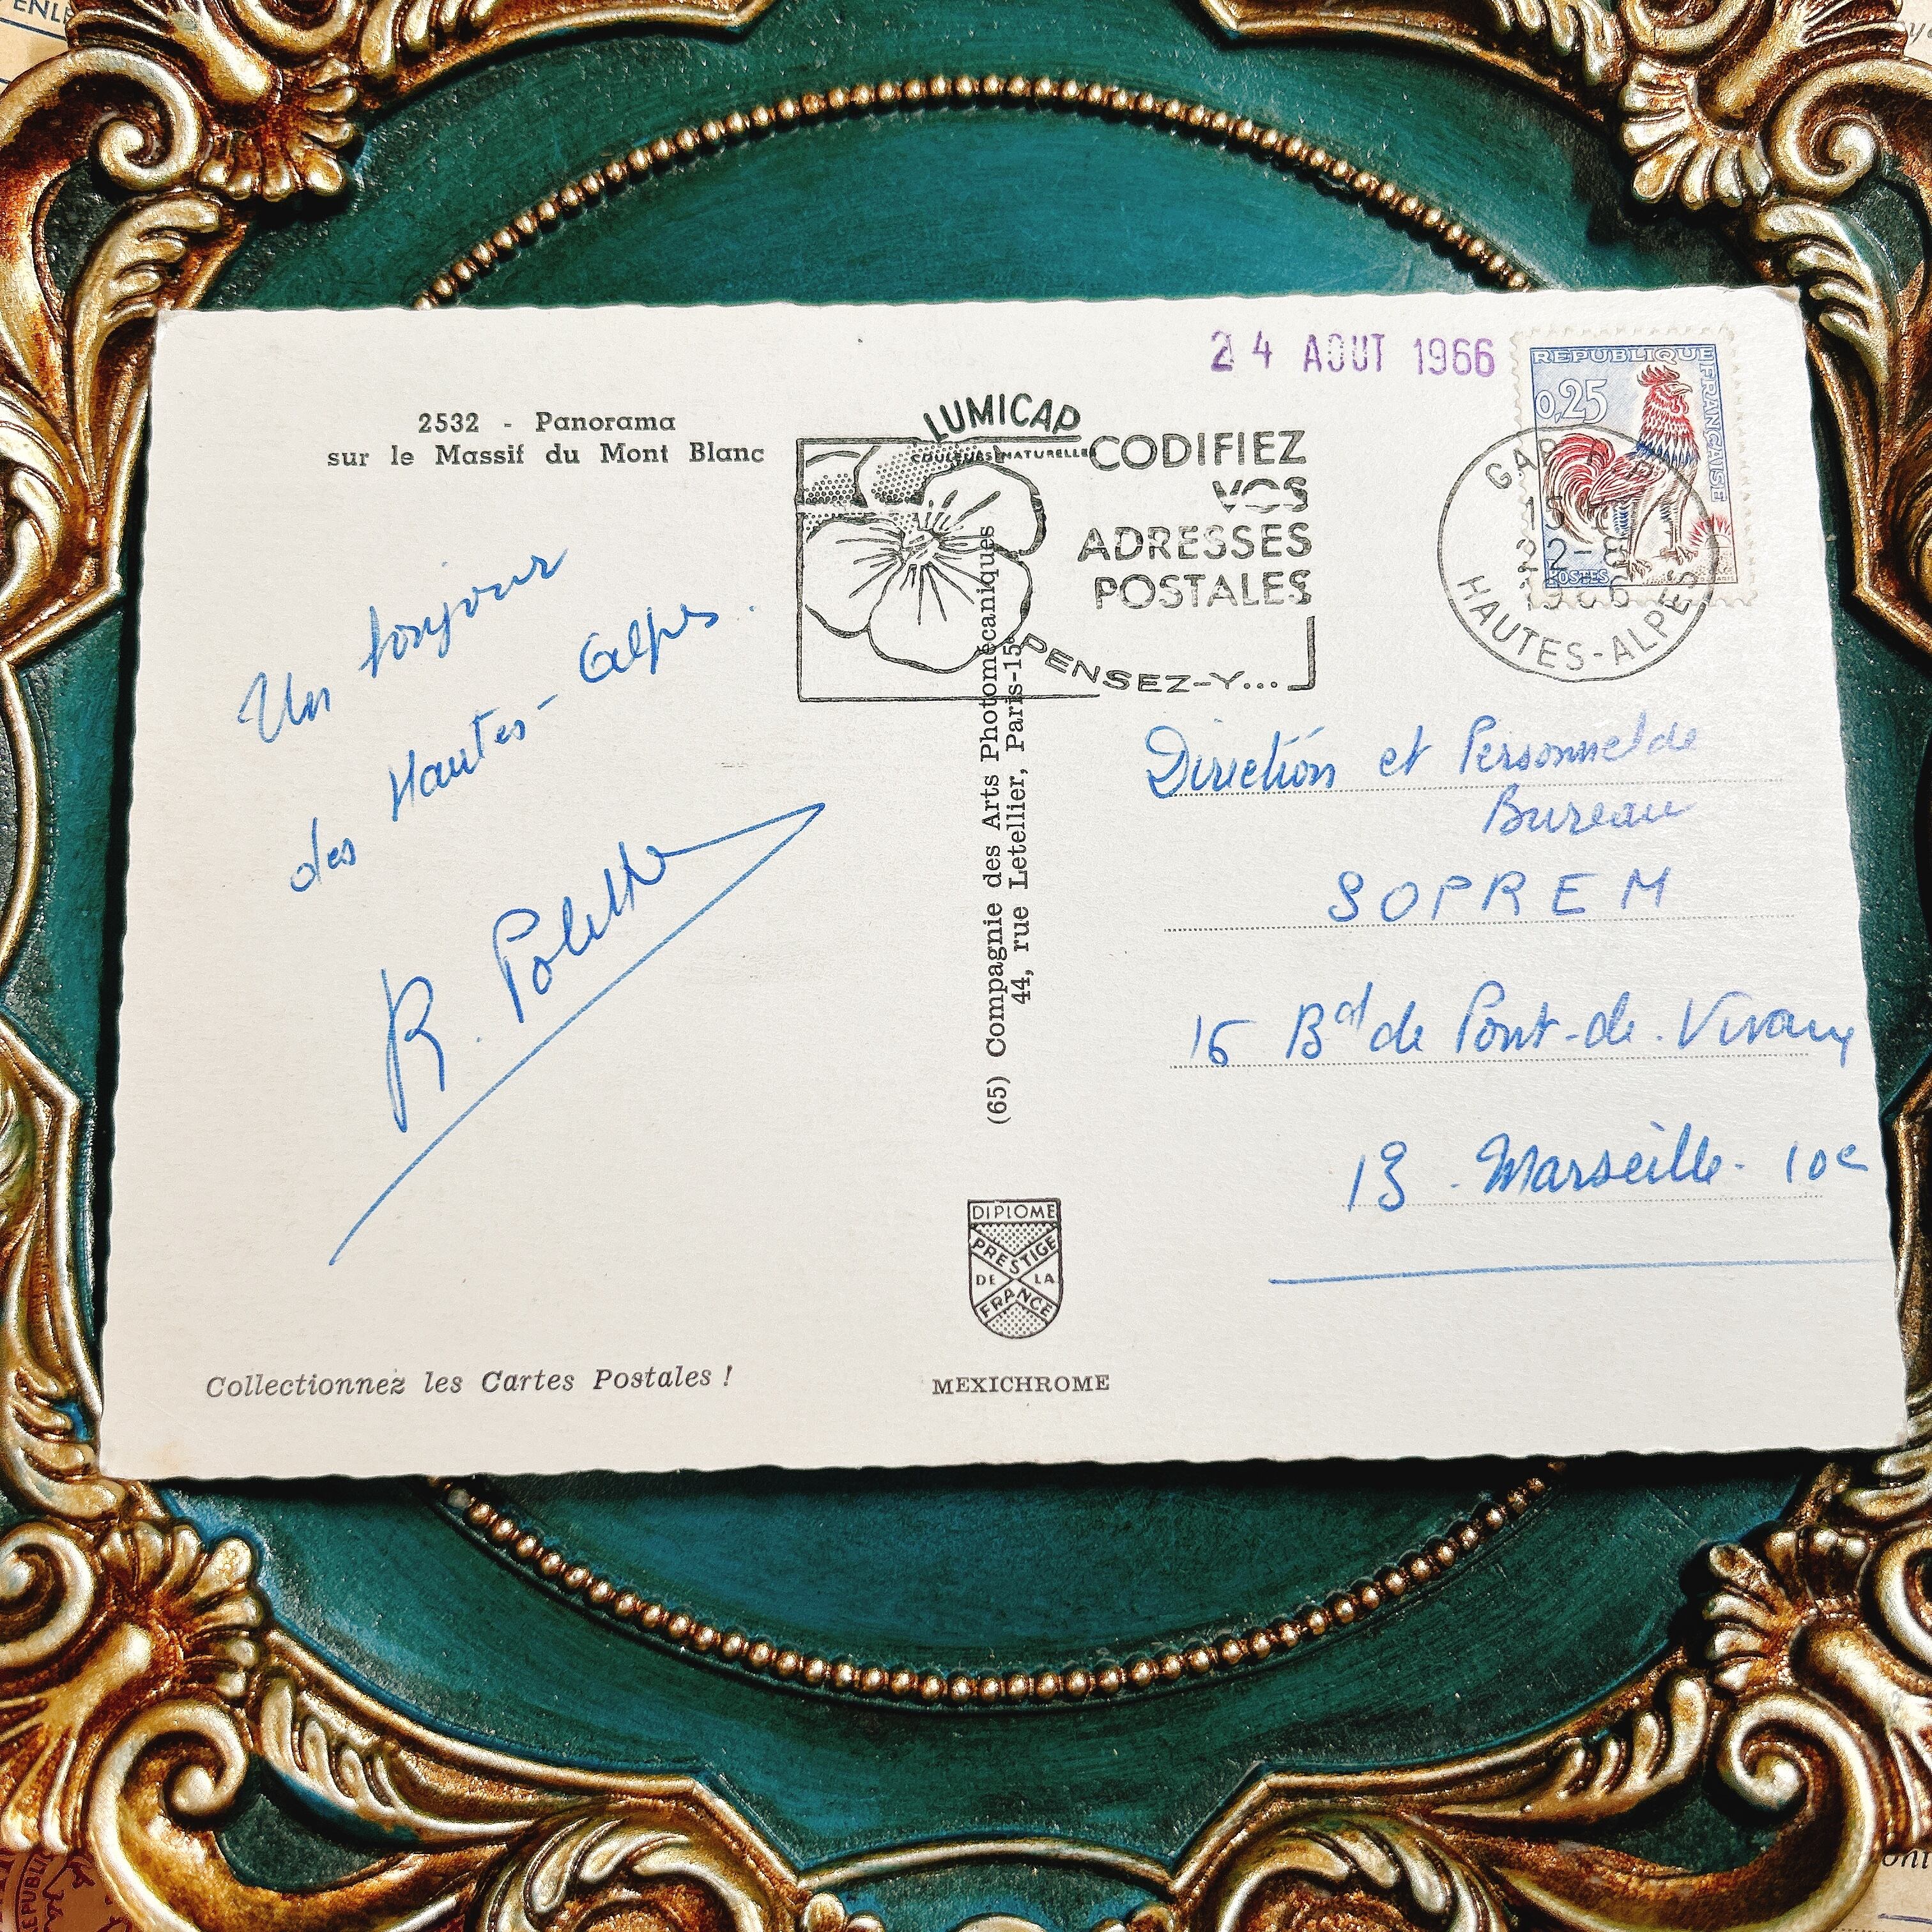 2532 - Panorama
sur le Massif du Mont Blanc
Un bonjour
des Hautes-Alpes.
R.
Collectionnez les Cartes Postales !
LUMICAP
COULEURS NATURELLES
CODIFIEZ
VOS
ADRESSES
POSTALES
PENSEZ-Y...
(65) Compagnie des Arts Photomécaniques
44, rue Letellier, Paris-15e
DIPLOME
PRESTIGE
DE LA
FRANCE
MEXICHROME
24 AOUT 1966
REPUBLIQUE FRANÇAISE
0,25
POSTES
GAP
HAUTES-ALPES
Direction et Personnel de
Bureau
SOPREM
16 Bd de Pont-de-Vivaux
13 - Marseille - 10e